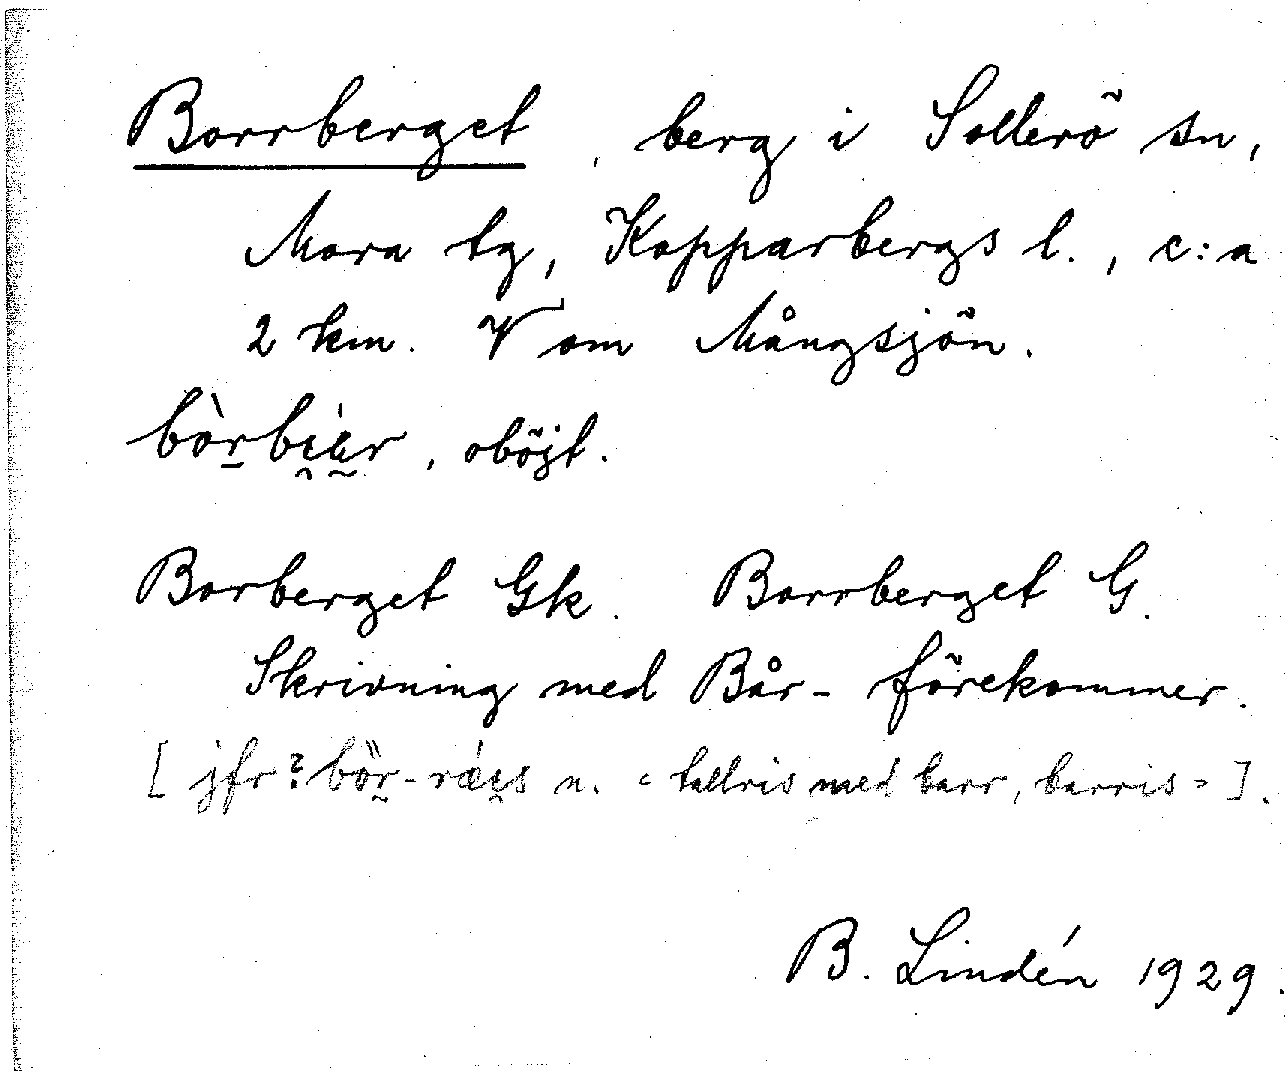 Borrberget, berg i Sollerö sn,
Mora tg, Kopparbergs l., c:a
2 km. V om Mångsjön.
bòr̠bi̯æ̰r, oböjt.
Borberget Gk. Borrberget G.
Skrivning med Bår- förekommer.
[jfr? bör̠-ræi̯s n. "tallris med barr, barris"].
B. Lindén 1929.